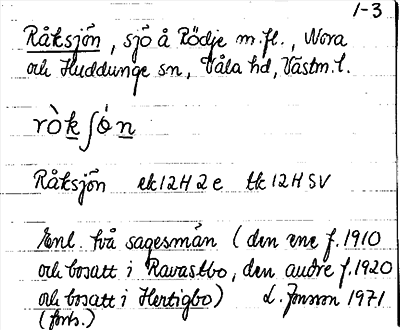 1-3
Råksjön, sjö å Rödje m.fl., Nora
och Huddunge sn, Våla hd, Västm. l.
rò̀k∫ó̀n
Råksjön ek 12H 2 e tk 12H SV
Enl. två sagesmän (den ene f. 1910
och bosatt i Ravastbo, den andre f. 1920
och bosatt i Hertigbo) L. Jonsson 1971
(forts.)